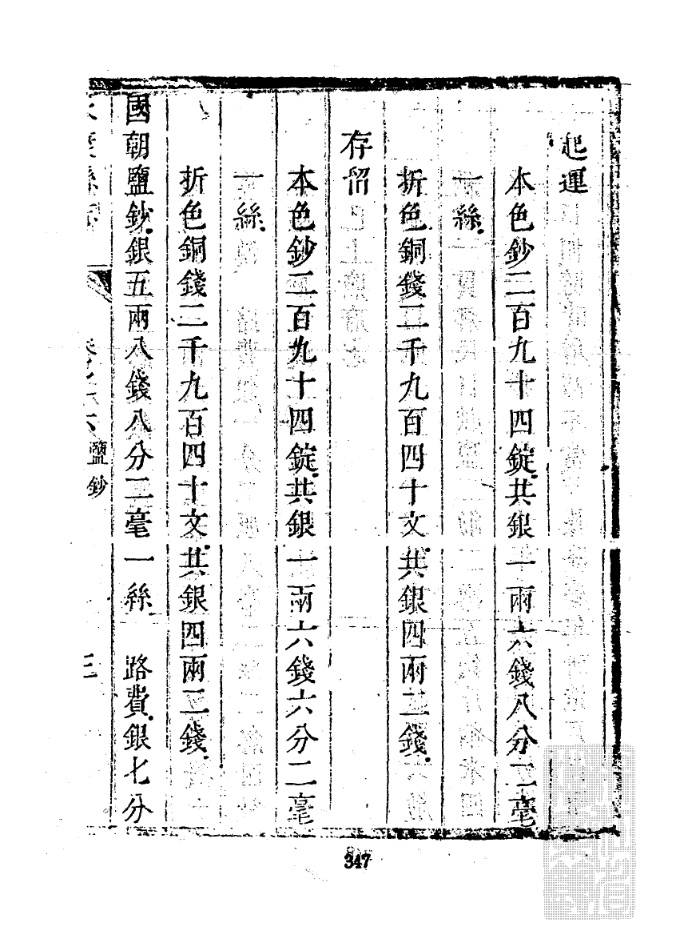 起運
本色鈔二百九十四錠共銀一兩六錢八分二毫
一絲
折色銅錢二千九百四十文共銀四兩二錢
存留
本色鈔二百九十四錠共銀一兩六錢六分二毫
一絲
折色銅錢二千九百四十文共銀四兩二錢
國朝鹽鈔銀五兩八錢八分二毫一絲 路費銀七分
鹽鈔
三
347